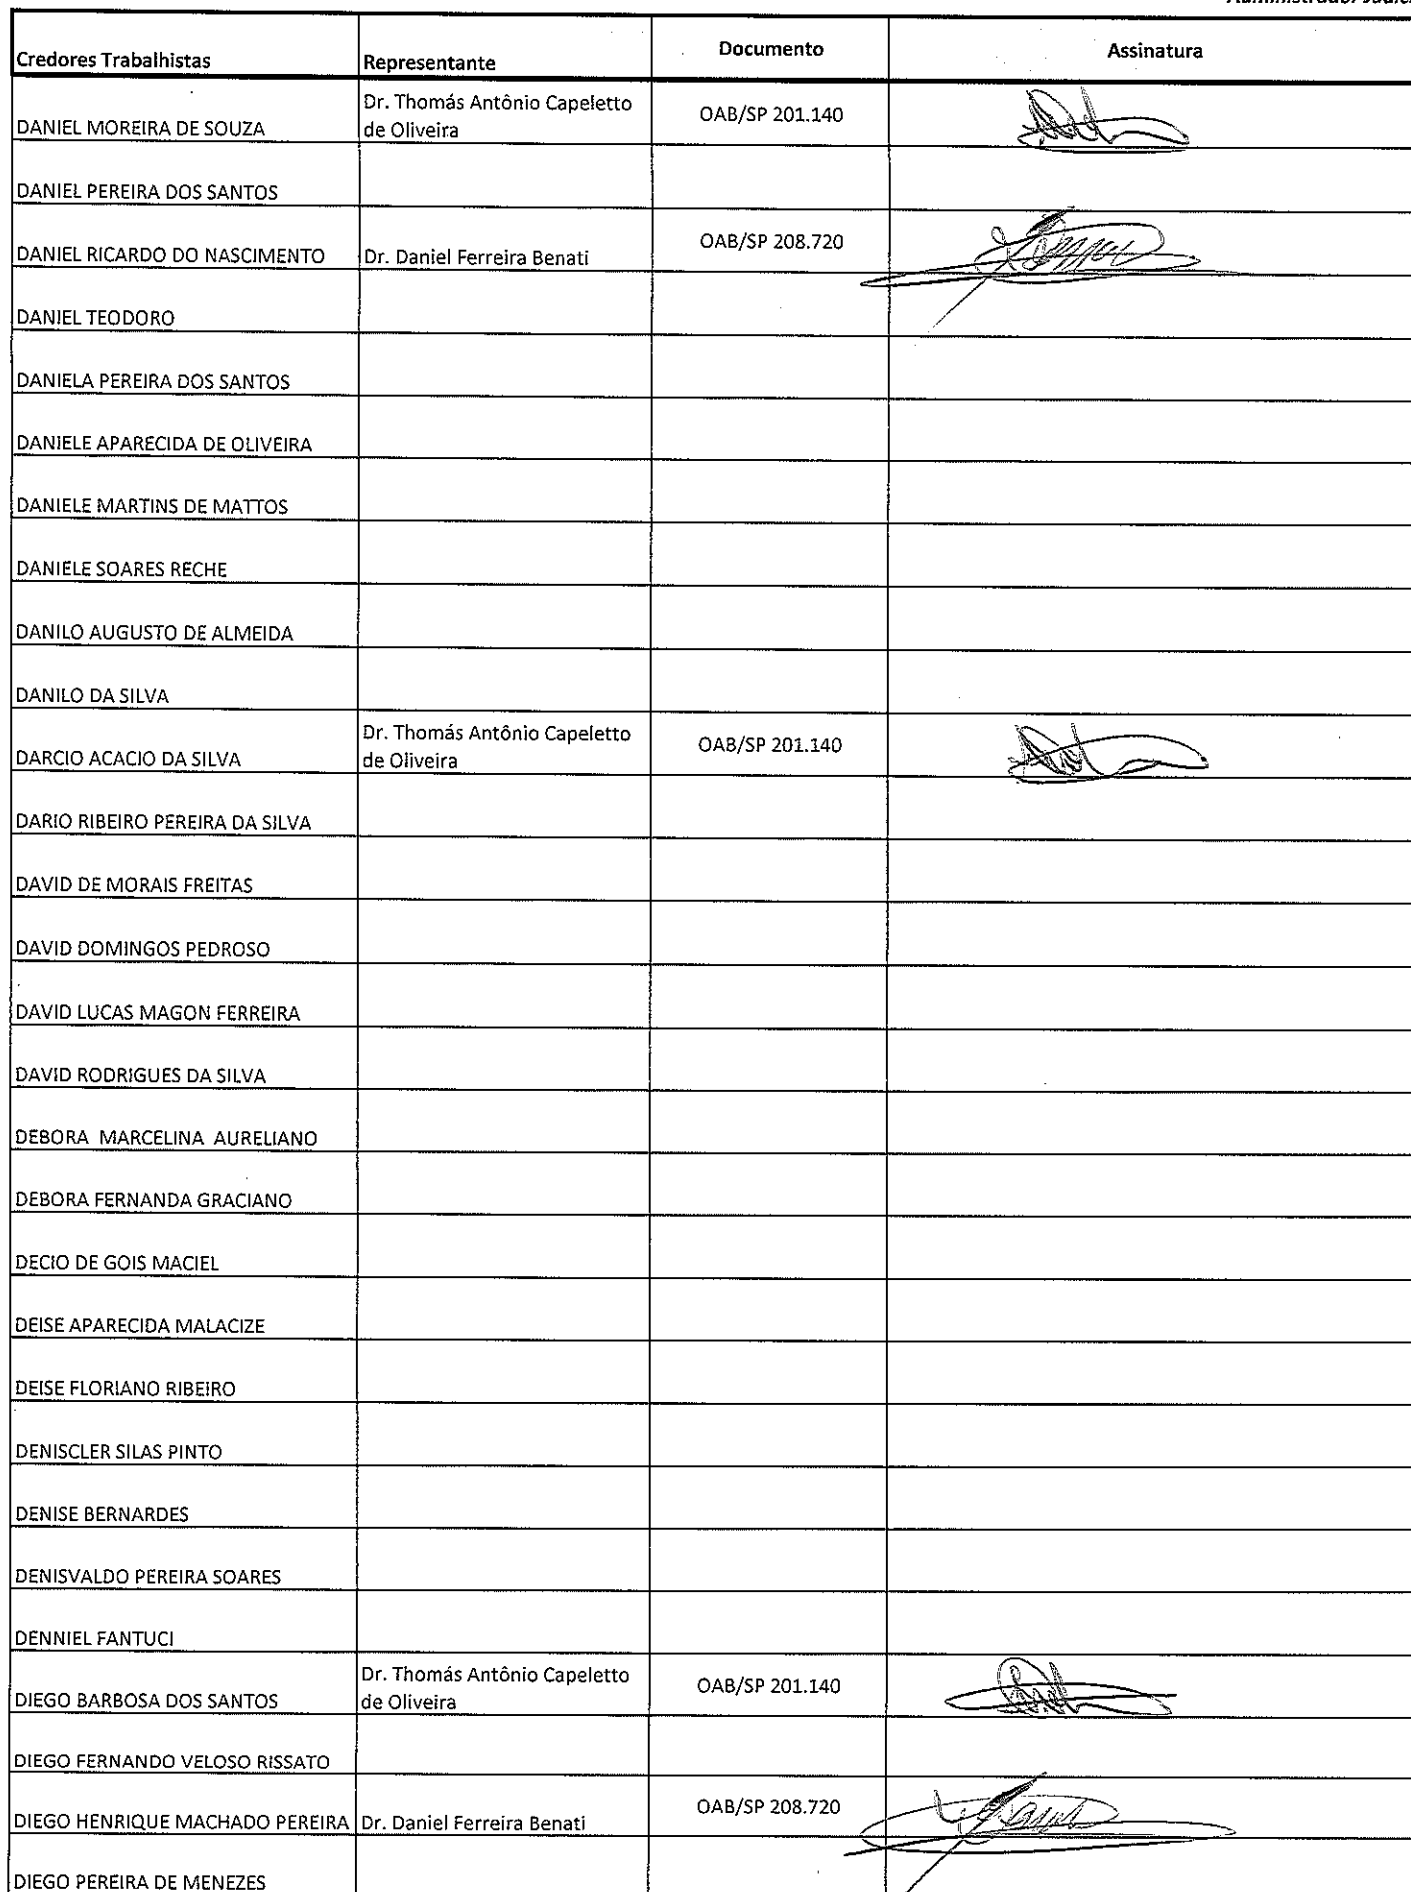 Credores Trabalhistas Representante Documento Assinatura
DANIEL MOREIRA DE SOUZA Dr. Thomás Antônio Capeletto de Oliveira OAB/SP 201.140
DANIEL PEREIRA DOS SANTOS
DANIEL RICARDO DO NASCIMENTO Dr. Daniel Ferreira Benati OAB/SP 208.720
DANIEL TEODORO
DANIELA PEREIRA DOS SANTOS
DANIELE APARECIDA DE OLIVEIRA
DANIELE MARTINS DE MATTOS
DANIELE SOARES RECHE
DANILO AUGUSTO DE ALMEIDA
DANILO DA SILVA
DARCIO ACACIO DA SILVA Dr. Thomás Antônio Capeletto de Oliveira OAB/SP 201.140
DARIO RIBEIRO PEREIRA DA SILVA
DAVID DE MORAIS FREITAS
DAVID DOMINGOS PEDROSO
DAVID LUCAS MAGON FERREIRA
DAVID RODRIGUES DA SILVA
DEBORA MARCELINA AURELIANO
DEBORA FERNANDA GRACIANO
DECIO DE GOIS MACIEL
DEISE APARECIDA MALACIZE
DEISE FLORIANO RIBEIRO
DENISCLER SILAS PINTO
DENISE BERNARDES
DENISVALDO PEREIRA SOARES
DENNIEL FANTUCI
DIEGO BARBOSA DOS SANTOS Dr. Thomás Antônio Capeletto de Oliveira OAB/SP 201.140
DIEGO FERNANDO VELOSO RISSATO
DIEGO HENRIQUE MACHADO PEREIRA Dr. Daniel Ferreira Benati OAB/SP 208.720
DIEGO PEREIRA DE MENEZES